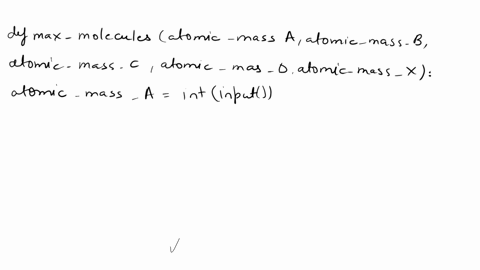 def max_molecules (atomic_mass A, atomic_mass_B,
atomic_mass_C, atomic_mas_D. atomic_mass_X):
atomic_mass_A = int (input())